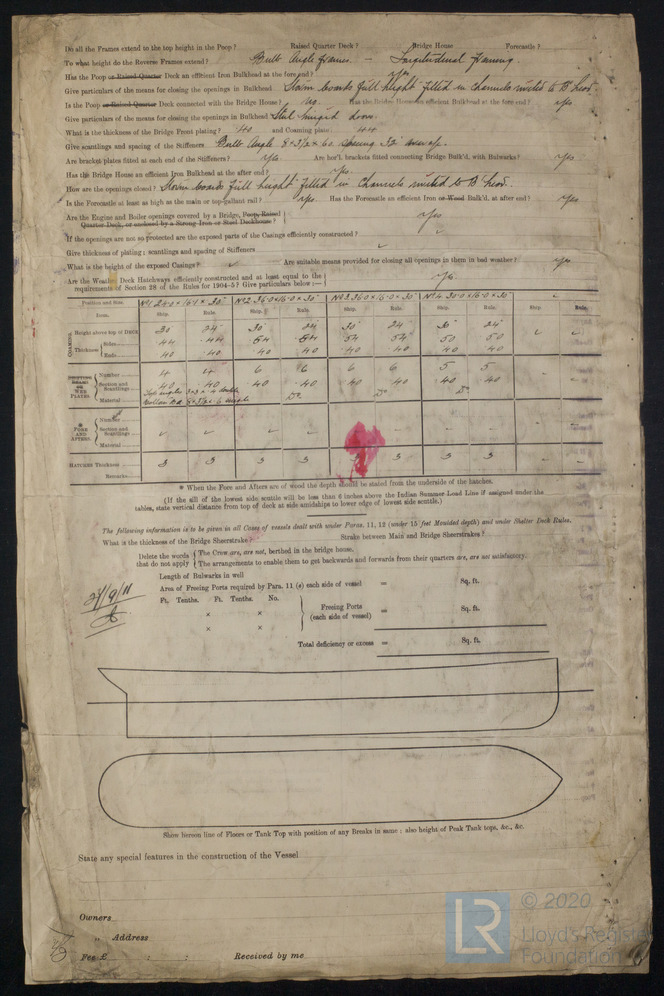 Do all the Frames extend to the top height in the Poop? Raised Quarter Deck? Bridge House Forecastle?
To what height do the Reverse Frames extend? Bulb Angle frames — Longitudinal Framing
Has the Poop or Raised Quarter Deck an efficient Iron Bulkhead at the fore end? yes
Give particulars of the means for closing the openings in Bulkhead Storm boards full height fitted in Channels riveted to B'head.
Is the Poop or Raised Quarter Deck connected with the Bridge House? No. Has the Bridge House an efficient Bulkhead at the fore end? yes
Give particulars of the means for closing the openings in Bulkhead Steel hinged doors.
What is the thickness of the Bridge Front plating? 44 and Coaming plate: 44
Give scantlings and spacing of the Stiffeners Bulb Angle 8 × 3½ × 60 spacing 30"
Are bracket plates fitted at each end of the Stiffeners? Yes Are hor'l. brackets fitted connecting Bridge Bulk'd. with Bulwarks? Yes
Has the Bridge House an efficient Iron Bulkhead at the after end? yes.
How are the openings closed? Storm boards full height fitted in Channels riveted to B'head.
Is the Forecastle at least as high as the main or top-gallant rail? yes. Has the Forecastle an efficient Iron or Wood Bulk'd. at after end? yes
Are the Engine and Boiler openings covered by a Bridge, Poop, Raised
Quarter Deck, or enclosed by a Strong Iron or Steel Deckhouse? Yes
If the openings are not so protected are the exposed parts of the Casings efficiently constructed? ✓
Give thickness of plating; scantlings and spacing of Stiffeners ✓
What is the height of the exposed Casings? ✓ Are suitable means provided for closing all openings in them in bad weather? yes
Are the Weather Deck Hatchways efficiently constructed and at least equal to the
requirements of Section 28 of the Rules for 1904-5? Give particulars below:— Yes
Position and Size Nº1 24·0 × 16·0 × 30" Nº2 36·0 × 16·0 × 30" Nº3 36·0 × 16·0 × 30" Nº4 30·0 × 16·0 × 30" ✓
Item. Ship. Rule. Ship. Rule. Ship. Rule. Ship. Rule. Ship. Rule.
COAMING Height above top of DECK 30 24" 30 24 30 24 30 24 ✓ ✓
Thickness Sides 44 44 54 54 54 54 50 50
Ends 40 40 40 40 40 40 40 40
WEB PLATES Number 4 4 6 6 6 6 5 5
Section and Scantlings 40 40 40 40 40 40 40 40
Material Top angles 3 × 3 × double Do Do Do
FORE AND AFTERS Number
Section and Scantlings ✓ ✓ ✓ ✓ – – – – – –
Material
HATCHES Thickness 3 3 3 3 3 3 3 – –
Remarks
* When the Fore and Afters are of wood the depth should be stated from the underside of the hatches.
(If the sill of the lowest side scuttle will be less than 6 inches above the Indian Summer Load Line if assigned under the
tables, state vertical distance from top of deck at side amidships to lower edge of lowest side scuttle.)
The following information is to be given in all Cases of vessels dealt with under Paras. 11, 12 (under 15 feet Moulded depth) and under Shelter Deck Rules.
What is the thickness of the Bridge Sheerstrake? Strake between Main and Bridge Sheerstrakes?
Delete the words that do not apply The Crew are, are not, berthed in the bridge house.
The arrangements to enable them to get backwards and forwards from their quarters are, are not satisfactory.
Length of Bulwarks in well
Area of Freeing Ports required by Para. 11 (e) each side of vessel = Sq. ft.
27/9/11
Ft. Tenths. Ft. Tenths. No.
× × Freeing Ports (each side of vessel) = Sq. ft.
× ×
Total deficiency or excess = Sq. ft.
Show hereon line of Floors or Tank Top with position of any Breaks in same: also height of Peak Tank tops, &c., &c.
State any special features in the construction of the Vessel
Owners
„ Address
Fee £ : : Received by me
LR © 2020
Lloyd's Register
Foundation